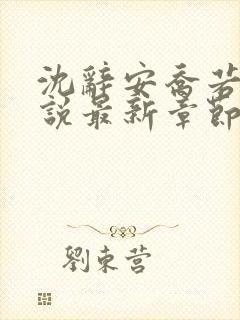 沈辭安喬若
說最新章節
劉東營